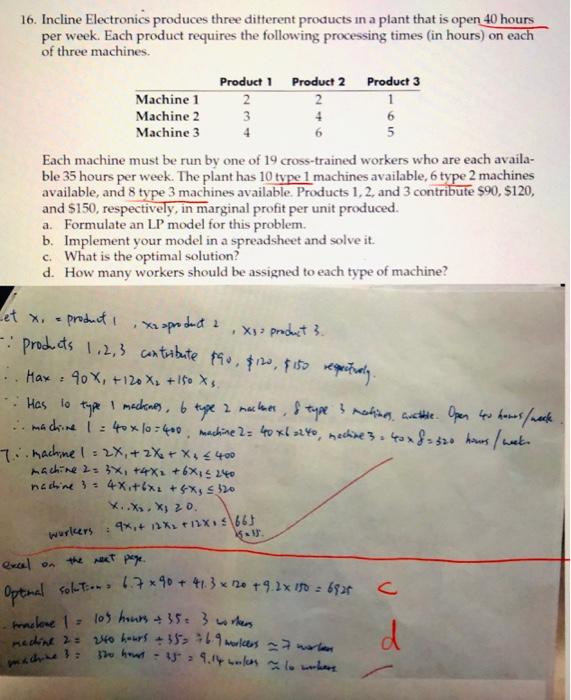 16. Incline Electronics produces three different products in a plant that is open 40 hours
per week. Each product requires the following processing times (in hours) on each
of three machines.
Product 1 Product 2 Product 3
Machine 1 2 2 1
Machine 2 3 4 6
Machine 3 4 6 5
Each machine must be run by one of 19 cross-trained workers who are each availa-
ble 35 hours per week. The plant has 10 type 1 machines available, 6 type 2 machines
available, and 8 type 3 machines available. Products 1, 2, and 3 contribute $90, $120,
and $150, respectively, in marginal profit per unit produced.
a. Formulate an LP model for this problem.
b. Implement your model in a spreadsheet and solve it.
c. What is the optimal solution?
d. How many workers should be assigned to each type of machine?
et x₁ = product 1, x₂ = product 2, x₃ = product 3.
∵ products 1,2,3 contribute $90, $120, $150 respectively.
∴ Max = 90X₁ + 120X₂ + 150X₃
∵ Has 10 type 1 machines, 6 type 2 machines, 8 type 3 machines Open 40 hours/week.
∴ machine 1 = 40×10=400, machine 2 = 40×6=240, machine 3 = 40×8=320 hours/week
∴ machine 1 = 2X₁ + 2X₂ + X₃ ≤ 400
machine 2 = 3X₁ + 4X₂ + 6X₃ ≤ 240
machine 3 = 4X₁ + 6X₂ + 5X₃ ≤ 320
X₁, X₂, X₃ ≥ 0.
workers : 9X₁ + 12X₂ + 12X₃ ≤ 665
excel on the next page.
Optimal solution = 6.7×90 + 41.3×120 + 9.2×150 = 6925 c
machine 1 = 105 hours ÷ 35 = 3 workers
machine 2 = 240 hours ÷ 35 = 6.9 workers ≈ 7 workers d
machine 3 = 320 hours ÷ 35 = 9.14 workers ≈ 10 workers